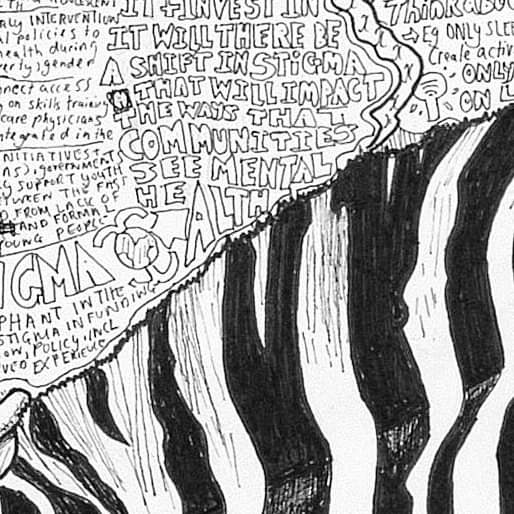 INTERVENTION
al policies to
health during
verty, gender
nnect access
g on skills
care physicians
integrated in the
INITIATIVES
GOVERNMENTS
SUPPORT YOUTH
BETWEEN THE PAST
FROM LACK OF
AND FORMAL
YOUNG PEOPLE
IGMA
PHANT IN THE
STIGMA IN FUNDING
OW, POLICY, INCL
EXPERIENCE
IT + INVEST IN
IT WILL THERE BE
A SHIFT IN STIGMA
THAT WILL IMPACT
THE WAYS THAT
COMMUNITIES
SEE MENTAL
HEALTH
Think
Eg ONLY SLEE
Create activ
ONLY
ON L